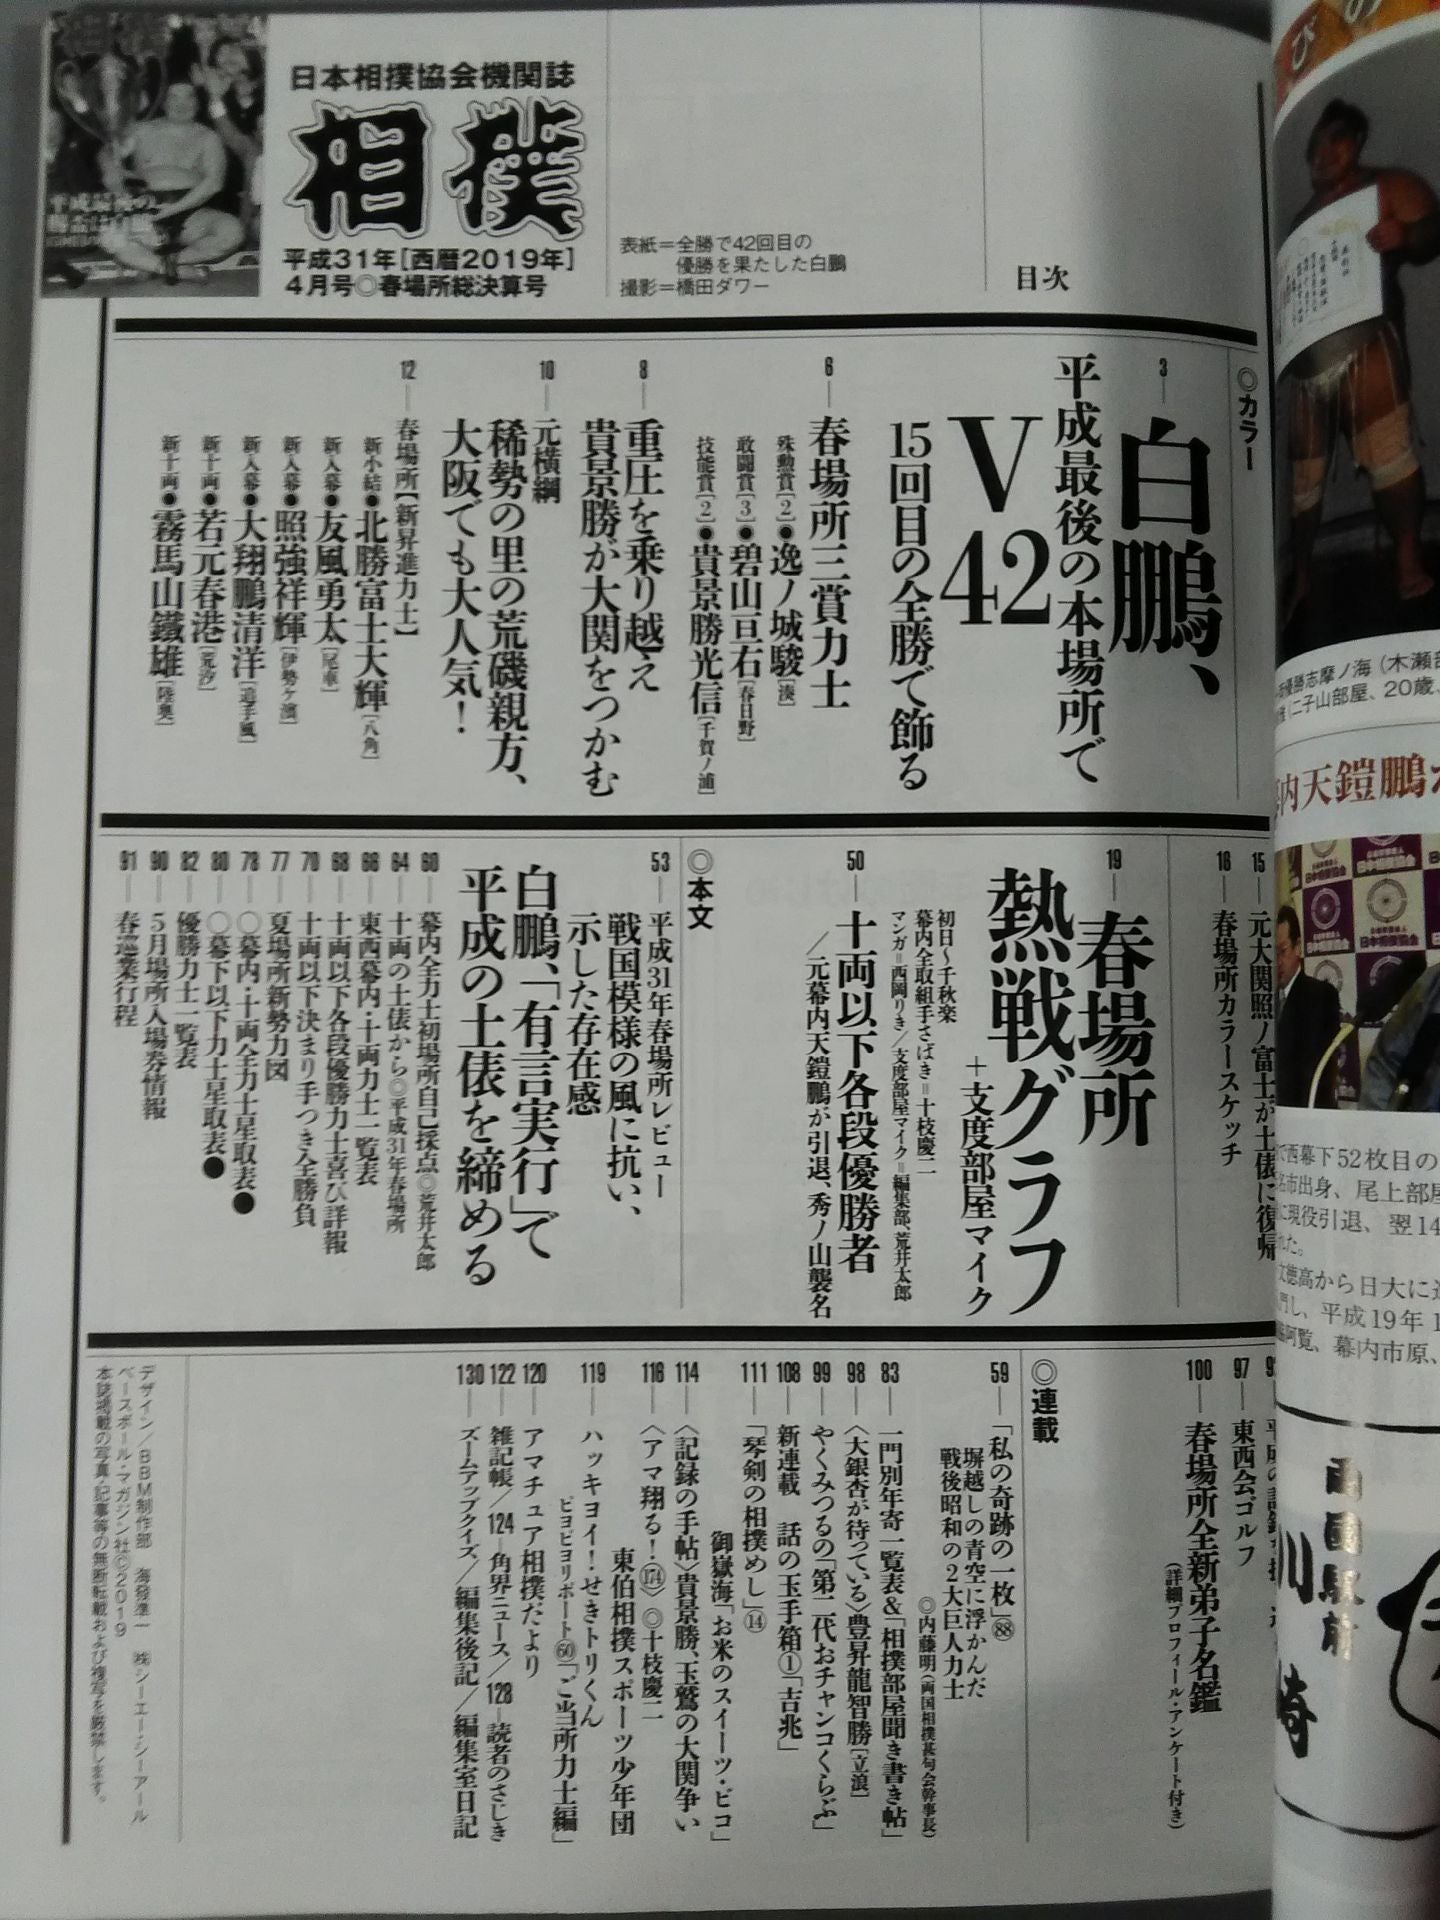 日本相撲協会機関誌
相撲
平成31年[西暦2019年]
4月号◎春場所総決算号
表紙=全勝で42回目の
優勝を果たした白鵬
撮影=橋田ダワー
目次
◎カラー
3 白鵬、
平成最後の本場所で
V42
15回目の全勝で飾る
6 春場所三賞力士
殊勲賞[2]●逸ノ城駿[湊]
敢闘賞[3]●碧山亘右[春日野]
技能賞[2]●貴景勝光信[千賀ノ浦]
8 重圧を乗り越え
貴景勝が大関をつかむ
10 元横綱
稀勢の里の荒磯親方、
大阪でも大人気!
12 春場所【新昇進力士】
新小結●北勝富士大輝[八角]
新入幕●友風勇太[尾車]
新入幕●照強祥輝[伊勢ケ濱]
新入幕●大翔鵬清洋[追手風]
新十両●若元春港[荒汐]
新十両●霧馬山鐵雄[陸奥]
15 元大関照ノ富士が土俵に復帰
16 春場所カラースケッチ
19 春場所
熱戦グラフ
+支度部屋マイク
初日〜千秋楽
幕内全取組手さばき=十枝慶二
マンガ=西岡りき/支度部屋マイク=編集部、荒井太郎
50 十両以下各段優勝者
/元幕内天鎧鵬が引退、秀ノ山襲名
◎本文
53 平成31年春場所レビュー
戦国模様の風に抗い、
示した存在感
白鵬、「有言実行」で
平成の土俵を締める
60 幕内全力士初場所自己採点◎荒井太郎
64 十両の土俵から◎平成31年春場所
66 東西幕内・十両力士一覧表
68 十両以下各段優勝力士喜び詳報
70 十両以下決まり手つき全勝負
77 夏場所新勢力図
78 ○幕内・十両全力士星取表●
80 ○幕下以下力士星取表●
82 優勝力士一覧表
90 5月場所入場券情報
91 春巡業行程
97 東西会ゴルフ
100 春場所全新弟子名鑑
(詳細プロフィール・アンケート付き)
◎連載
59 「私の奇跡の一枚」88
塀越しの青空に浮かんだ
戦後昭和の2大巨人力士
◎内藤明(両国相撲甚句会幹事長)
83 一門別年寄一覧表&「相撲部屋聞き書き帖」
98 〈大銀杏が待っている〉豊昇龍智勝[立浪]
99 やくみつるの「第二代おチャンコくらぶ」
108 新連載 話の玉手箱①「吉兆」
111 「琴剣の相撲めし」⑭
御嶽海「お米のスイーツ・ピコ」
114 〈記録の手帖〉貴景勝、玉鷲の大関争い
116 〈アマ翔る!174〉◎十枝慶二
東伯相撲スポーツ少年団
119 ハッキヨイ!せきトリくん
ピヨピヨリポート60「ご当所力士編」
120 アマチュア相撲だより
122 雑記帳/124 角界ニュース/128 読者のさじき
130 ズームアップクイズ/編集後記/編集室日記
デザイン/BBM制作部 海發準一 ㈱シーエー・シーアール
ベースボール・マガジン社©2019
本誌掲載の写真・記事等の無断転載および複写を厳禁します。
優勝志摩ノ海(木瀬部
(二子山部屋、20歳、
内天鎧鵬
日本相撲協会
で西幕下52枚目の
名市出身、尾上部屋
に現役引退、翌14
れた。
文徳高から日大に進
門し、平成19年1
阿覧、幕内市原、